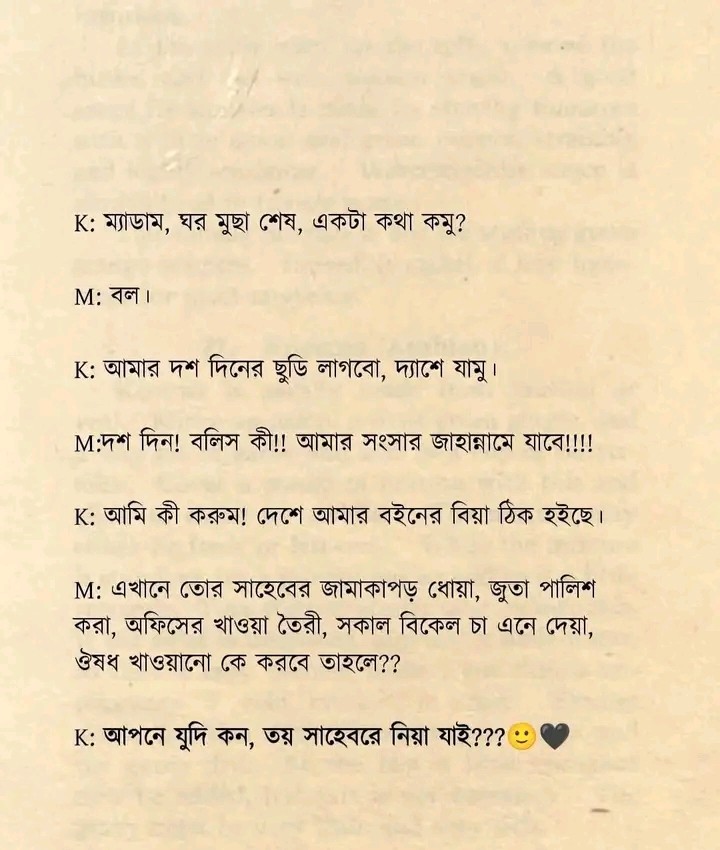 K: ম্যাডাম, ঘর মুছা শেষ, একটা কথা কমু?
M: বল।
K: আমার দশ দিনের ছুডি লাগবো, দ্যাশে যামু।
M:দশ দিন! বলিস কী!! আমার সংসার জাহান্নামে যাবে!!!!
K: আমি কী করুম! দেশে আমার বইনের বিয়া ঠিক হইছে।
M: এখানে তোর সাহেবের জামাকাপড় ধোয়া, জুতা পালিশ
করা, অফিসের খাওয়া তৈরী, সকাল বিকেল চা এনে দেয়া,
ঔষধ খাওয়ানো কে করবে তাহলে??
K: আপনে যুদি কন, তয় সাহেবরে নিয়া যাই???🙂🖤